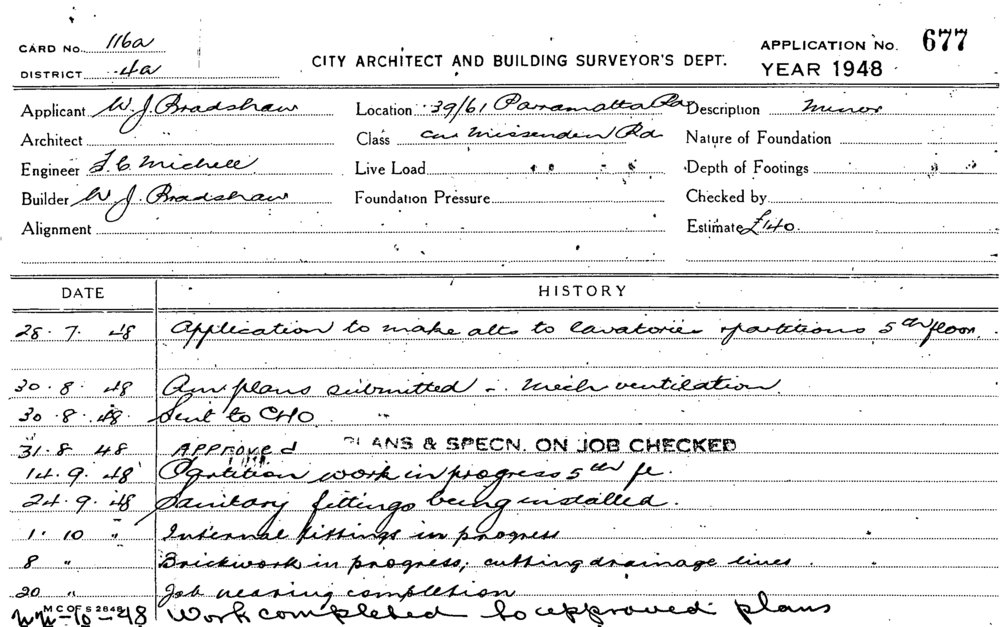 CARD No. 116a
DISTRICT 4a
CITY ARCHITECT AND BUILDING SURVEYOR'S DEPT.
APPLICATION No. 677
YEAR 1948
Applicant W. J. Bradshaw Location 39/61 Parramatta Rd Description Minor
Architect Class cnr Missenden Rd Nature of Foundation
Engineer F. C. Michell Live Load Depth of Footings
Builder W J. Bradshaw Foundation Pressure Checked by
Alignment Estimate £140.
DATE HISTORY
28.7.48 Application to make alts to lavatories & partitions 5th floor.
30.8.48 Am plans submitted - Mech ventilation
30.8.48. Sent to CHO "
31.8 48 Approved PLANS & SPECN. ON JOB CHECKED
14.9.48 Partition work in progress 5th fl.
24.9.48 Sanitary fittings being installed.
1.10 " Internal fittings in progress
8 " Brickwork in progress, cutting drainage lines.
20 " Job nearing completion
M C OF S 2848
-10-48 Work completed to approved plans